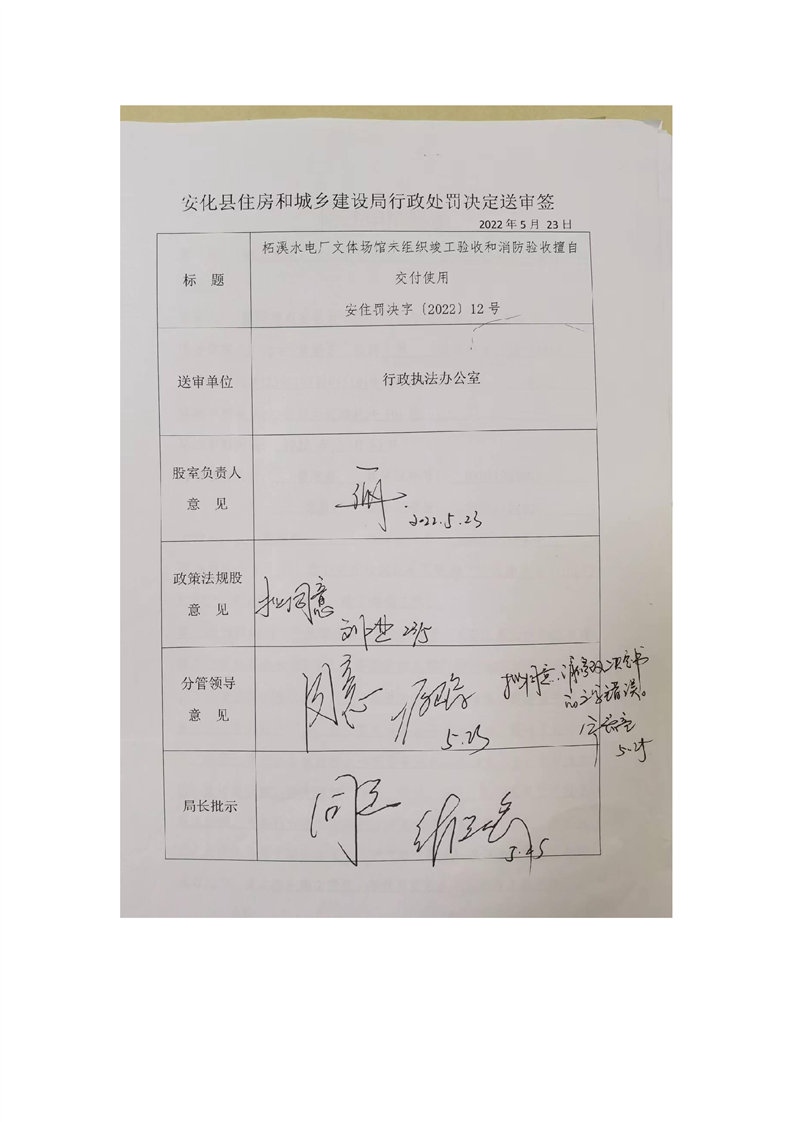 安化县住房和城乡建设局行政处罚决定送审签
2022年5月 23日
标 题
柘溪水电厂文体场馆未组织竣工验收和消防验收擅自
交付使用
安住罚决字〔2022〕12号
送审单位
行政执法办公室
股室负责人
意 见
2022.5.23
政策法规股
意 见
拟同意
23/5
分管领导
意 见
同意
5.23
拟同意,请修改决定书
的文字错误。
5.25
局长批示
同意